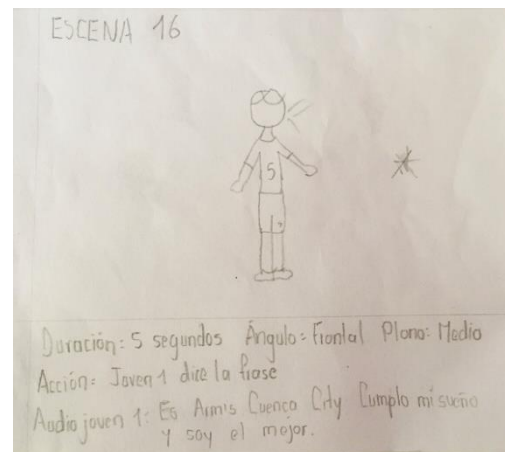 ESCENA 16
5
Duración: 5 segundos Ángulo: Frontal Plano: Medio
Acción: Joven 1 dice la frase
Audio joven 1: En Arm's Cuenca City Cumplo mi sueño
y soy el mejor.